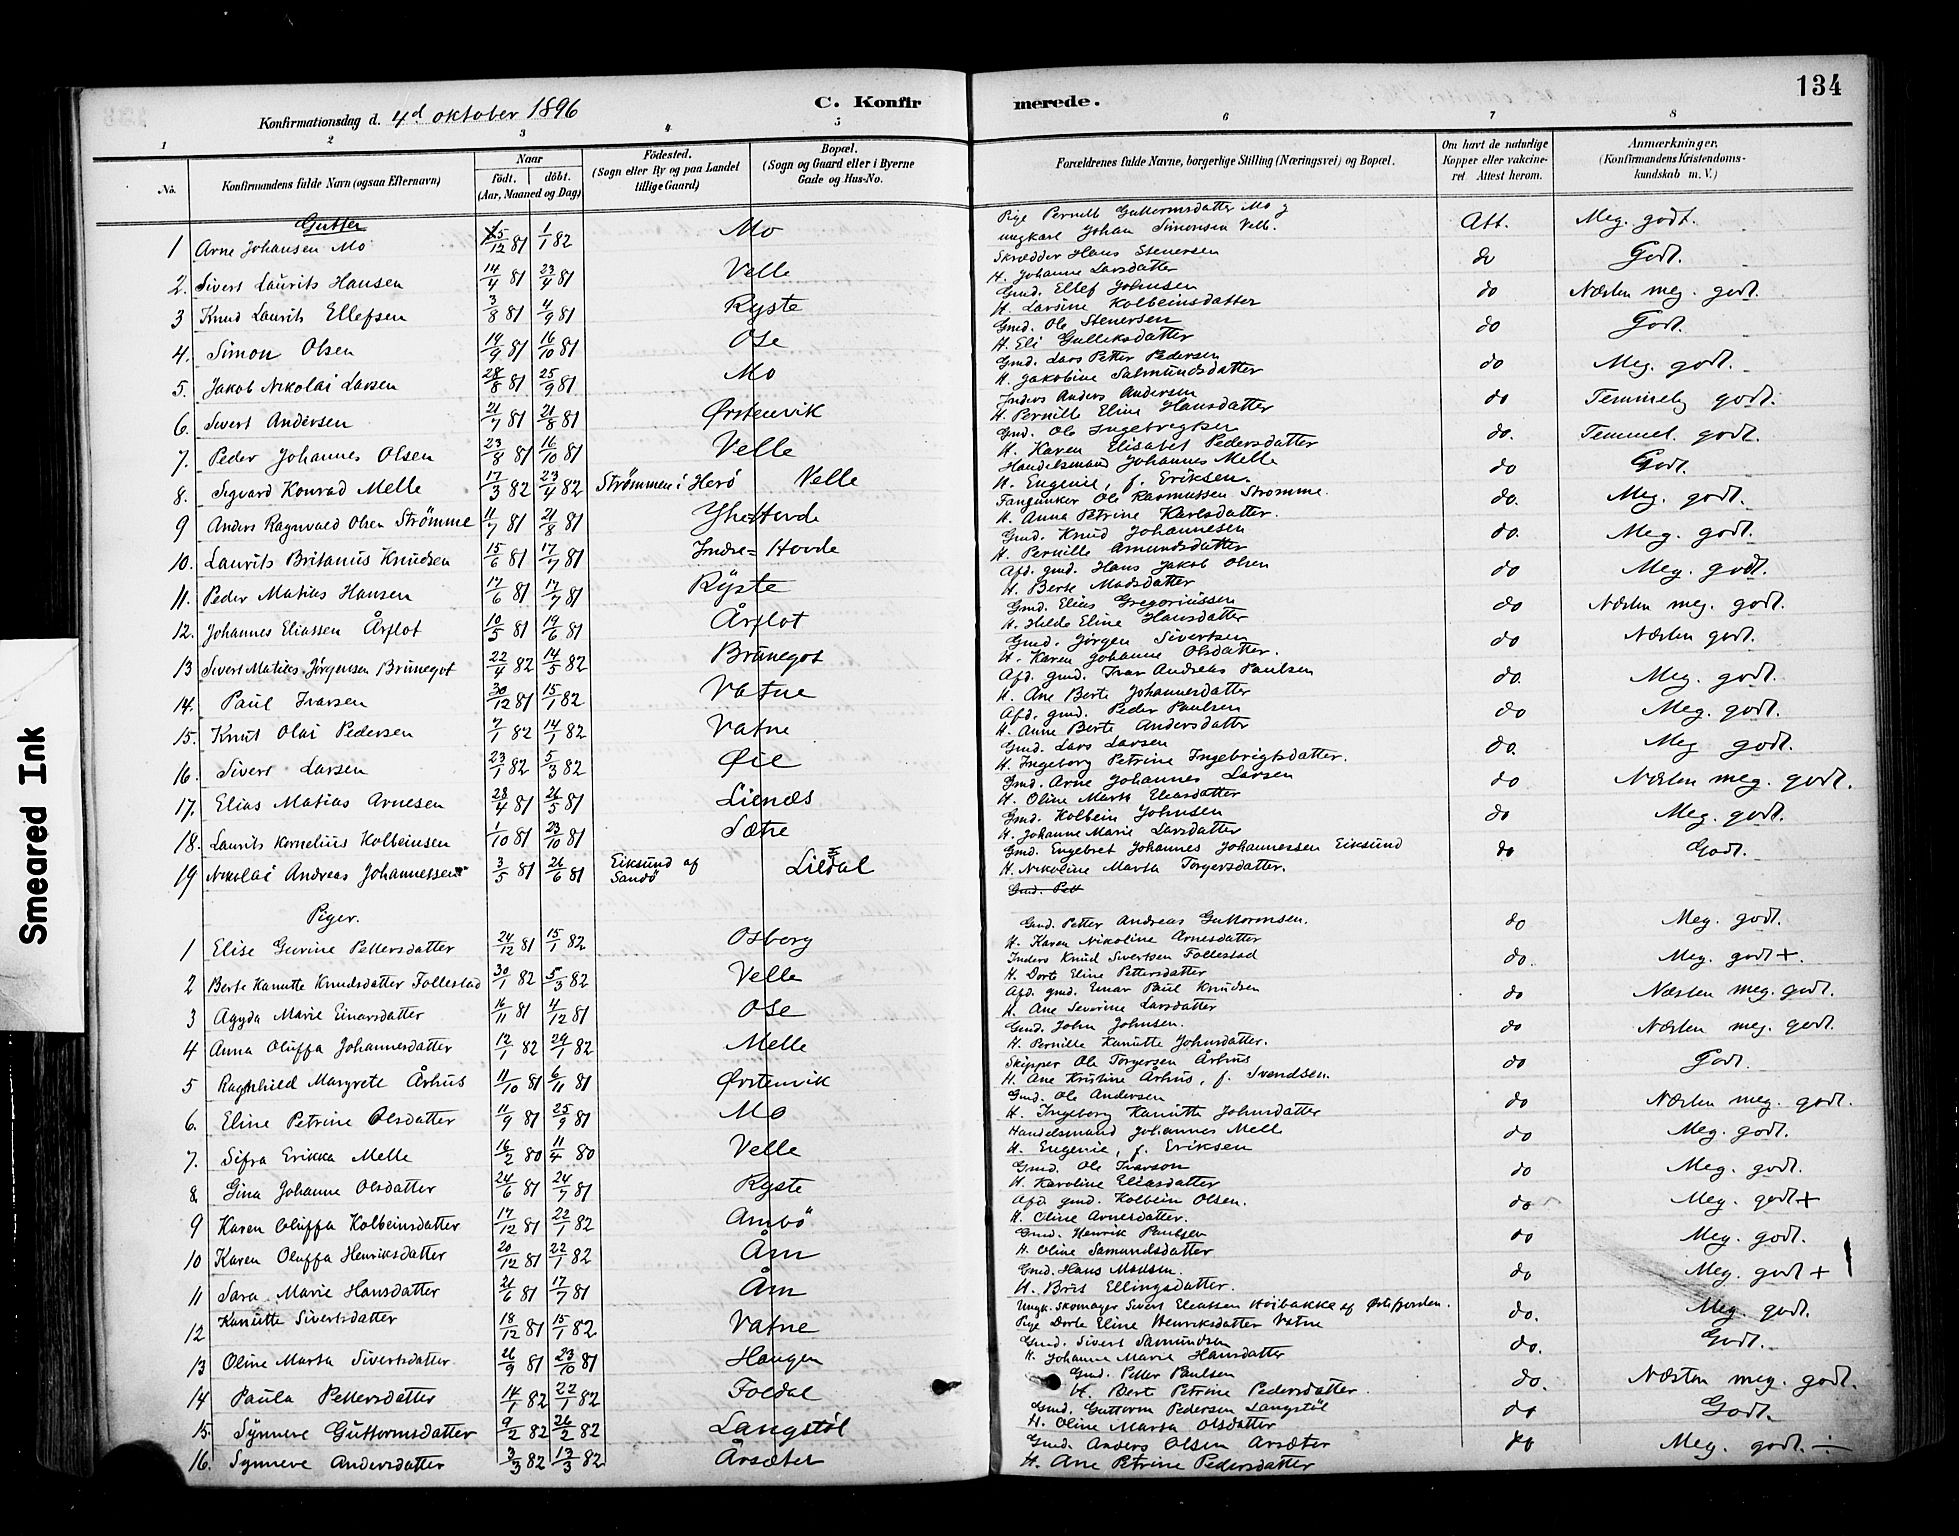 134
C. Konfirmerede.
Konfirmationsdag d. 4d oktober 1896
1 2 3 4 5 6 7 8
No. Konfirmandens fulde Navn (ogsaa Efternavn) Naar født. døbt. (Aar, Maaned og Dag) Fødested. (Sogn eller By og paa Landet tillige Gaard) Bopæl. (Sogn og Gaard eller i Byerne Gade og Hus-No. Forældrenes fulde Navne, borgerlige Stilling (Næringsvei) og Bopæl. Om havt de naturlige Kopper eller vakcineret. Attest herom. Anmærkninger. (Konfirmandens Kristendomskundskab m. V.)
Gutter
1 Arne Johansen Mo 25/12 81 1/1 82 Mo Pige Pernille Guttormsdatter Mo g ungkarl Johan Simonsen Velle. Att. Meg. godt.
2. Sivert Laurits Hansen 14/4 81 23/4 81 Velle Skrædder Hans Stenersen H. Johanne Larsdatter do Godt.
3 Knud Laurits Ellefsen 3/8 81 4/9 81 Ryste Gmd. Ellef Johnsen H. Larsine Kolbeinsdatter do Næsten meg. godt.
4. Simon Olsen 19/9 81 16/10 81 Ose Gmd. Ole Stenersen H. Eli Gulleksdatter do Godt.
5. Jakob Nikolai Larsen 28/8 81 25/9 81 Mo Gmd. Lars Petter Pedersen H. Jakobine Salmundsdatter do Meg. godt.
6. Sivert Andersen 21/7 81 21/8 81 Ørstenvik Inders Anders Andersen H. Pernille Eline Hansdatter do Temmelig godt.
7. Peder Johannes Olsen 23/8 81 16/10 81 Velle Gmd. Ole Ingebrigtsen H. Karen Elisabet Pedersdatter do. Temmel. godt.
8. Sigvard Konrad Melle 17/3 82 23/4 82 Strømmen i Herø Velle Handelsmand Johannes Melle H. Eugenie, f. Eriksen. do Godt.
9 Anders Ragnvald Olsen Strømme 11/7 81 21/8 81 Yhe Hovde Ole Rasmussen Strømme. H. Anna Petrine Karlsdatter. do. Meg. godt.
10. Laurits Britanus Knudsen 15/6 81 17/7 81 Indre= Hovde Gmd. Knud Johannesen H. Pernille Amundsdatter do. Meg. godt.
11. Peder Matias Hansen 17/6 81 17/7 81 Ryste Afd. gmd. Hans Jakob Olsen H. Berte Madsdatter do Meg. godt.
12. Johannes Eliassen Årflot 10/5 81 19/6 81 Årflot Gmd. Elias Gregoriussen H. Hilde Eline Hansdatter do Næsten meg. godt.
13 Sivert Matias Jørgensen Brunegot 22/4 82 14/5 82 Brunegot Gmd. Jørgen Sivertsen H. Karen Johanne Olsdatter. do Næsten godt.
14. Paul Ivarsen 30/12 81 15/1 82 Vatne Afd. gmd. Ivar Andreas Paulsen H. Ane Berte Johannesdatter do. Meg. godt.
15. Knut Olai Pedersen 7/1 82 14/1 82 Vatne Afd. gmd. Peder Paulsen H. Anne Berte Andersdatter do Meg. godt.
16. Sivert Larsen 23/1 82 5/3 82 Øie Gmd. Lars Larsen H. Ingeborg Petrine Ingebrigtsdatter. do. Meg godt.
17. Elias Matias Arnesen 28/4 81 26/5 81 Lienæs Gmd. Arne Johannes Larsen H. Oline Marte Eliasdatter do Næsten meg. godt.
18. Laurits Kornelius Kolbeinsen 1/10 81 23/10 81 Sætre Gmd. Kolbein Johnsen H. Johanne Marie Larsdatter do Meg. godt.
19 Nikolai Andreas Johannessen 3/5 81 26/6 81 Eiksund af Sandø Liedal Gmd. Engebret Johannes Johannessen Eiksund H. Nikoline Marta Torgersdatter. do Godt.
Gmd. Pett
Piger.
1 Elise Gurine Pettersdatter 24/12 81 15/1 82 Osborg Gmd. Petter Andreas Guttormsen. H. Karen Nikoline Arnesdatter do Meg. godt.
2 Berte Kanutte Knudsdatter Follestad 30/1 82 5/3 82 Velle Inders Knud Sivertsen Follestad H. Dorte Eline Pettersdatter do. Meg. godt +.
3 Agyda Marie Einarsdatter 16/11 81 4/12 81 Ose Afd. gmd. Einar Paul Knudsen H. Ane Severine Larsdatter do Næsten meg. godt.
4 Anna Oluffa Johannesdatter 12/1 82 29/1 82 Melle Gmd. John Johnsen. H. Pernille Kanutte Johnsdatter. do Næsten meg. godt.
5 Ragnhild Margrete Århus 11/10 81 6/11 81 Ørstenvik Skipper Ole Torgersen Århus H. Ane Kristine Århus, f. Svendsen. do Godt.
6. Eline Petrine Olsdatter 11/9 81 25/9 81 Mo Gmd. Ole Andersen H. Ingeborg Kanutte Johnsdatter do Næsten meg. godt.
7. Sifra Erikka Melle 16/2 80 11/4 80 Velle Handelsmand Johannes Melle H. Eugenie, f. Eriksen do Meg. godt.
8. Gina Johanne Olsdatter 24/6 81 24/7 81 Ryste Gmd. Ole Ivarson H. Karoline Eliasdatter do Meg. godt.
9 Karen Oluffa Kolbeinsdatter 17/12 81 22/1 82 Ambø Afd. gmd. Kolbein Olsen. H. Oline Arnesdatter. do Meg. godt +
10 Karen Oluffa Henriksdatter 20/12 81 22/1 82 Åm Gmd. Henrik Paulsen H. Oline Samundsdatter do Meg. godt.
11 Sara Marie Hansdatter 21/6 81 17/7 81 Åm Gmd. Hans Madsen. H. Brit Ellingsdatter. do Meg. godt +
12 Kanutte Sivertsdatter 18/12 81 15/1 82 Vatne Ungk. Skomager Sivert Eleassen Høibakke af Pige Dorte Eline Henriksdatter Vatne do. Meg. godt.
13 Oline Marta Sivertsdatter. 26/9 81 23/10 81 Haugen Gmd. Sivert Samundsen H. Johanne Marie Hansdatter do. Godt.
14 Paula Pettersdatter 14/1 82 22/1 82 Foldal Gmd. Petter Paulsen H. Berte Petrine Pedersdatter. do. Næsten meg. godt.
15. Synneve Guttormsdatter 9/2 82 26/2 82 Langstøl Gmd. Guttorm Pedersen Langstøl H. Oline Marta Olsdatter do Godt.
16. Synneve Andersdatter 3/3 82 13/3 82 Årsæter Gmd. Anders Olsen Årsæter H. Ane Petrine Pedersdatter do Meg. godt. ÷
Smeared Ink